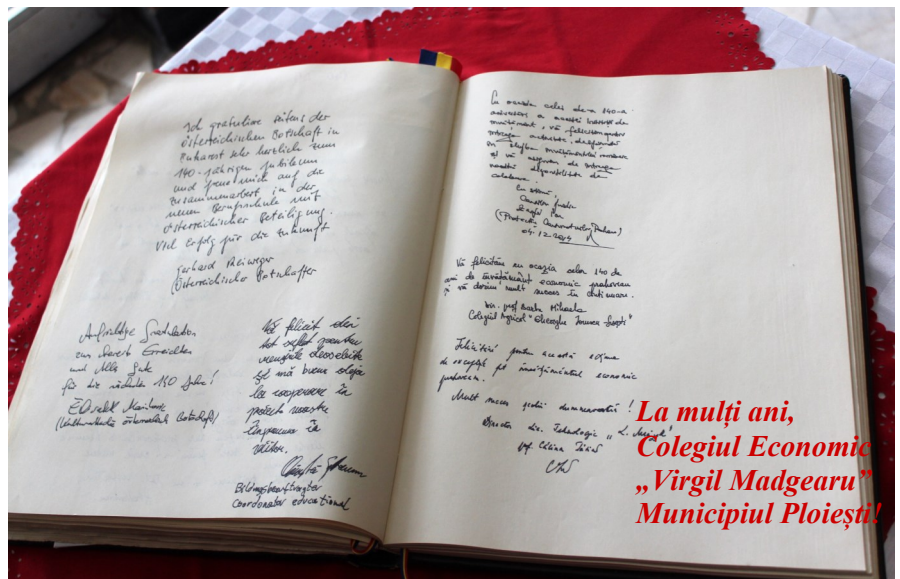 Ich gratuliere seitens der
österreichischen Botschaft in
Bukarest sehr herzlich zum
140-jährigen Jubiläum
und freue mich auf die
Zusammenarbeit in der
neuen Berufsschule mit
österreichischer Beteiligung.
Viel Erfolg für die Zukunft
Gerhard Reiweger
(Österreichischer Botschafter
Aufrichtige Gratulation
zum bereits Erreichten
und Alles Gute
für die nächsten 150 Jahre!
Elisabeth
Vă felicit din
tot suflet pentru
deosebite
și mă bucur
la cooperare în
noastre
împreună în
viitor.
Bildungsbeauftragter
coordonator educațional
Cu ocazia celei de-a 140-a
aniversări a acestei instituții de
învățământ, vă felicităm pentru
întreaga activitate desfășurată
în slujba învățământului românesc
și vă asigurăm de întreaga
noastră disponibilitate de
colaborare.
Cu stimă,
04.12.2014
Vă felicităm cu ocazia celor 140 de
ani de învățământ economic prahovean
și vă dorim mult succes în continuare.
Dir. prof. Mihaela
Colegiul Agricol "Gheorghe Ionescu Sisești"
Felicitări pentru această
de excepție pt învățământul economic
prahovean.
Mult succes școlii dumneavoastră!
Director Lic. Tehnologic „
prof.
La mulți ani,
Colegiul Economic
„Virgil Madgearu”
Municipiul Ploiești!